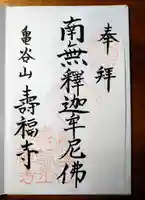 奉拜
南無釋迦牟尼佛
亀谷山 壽福寺